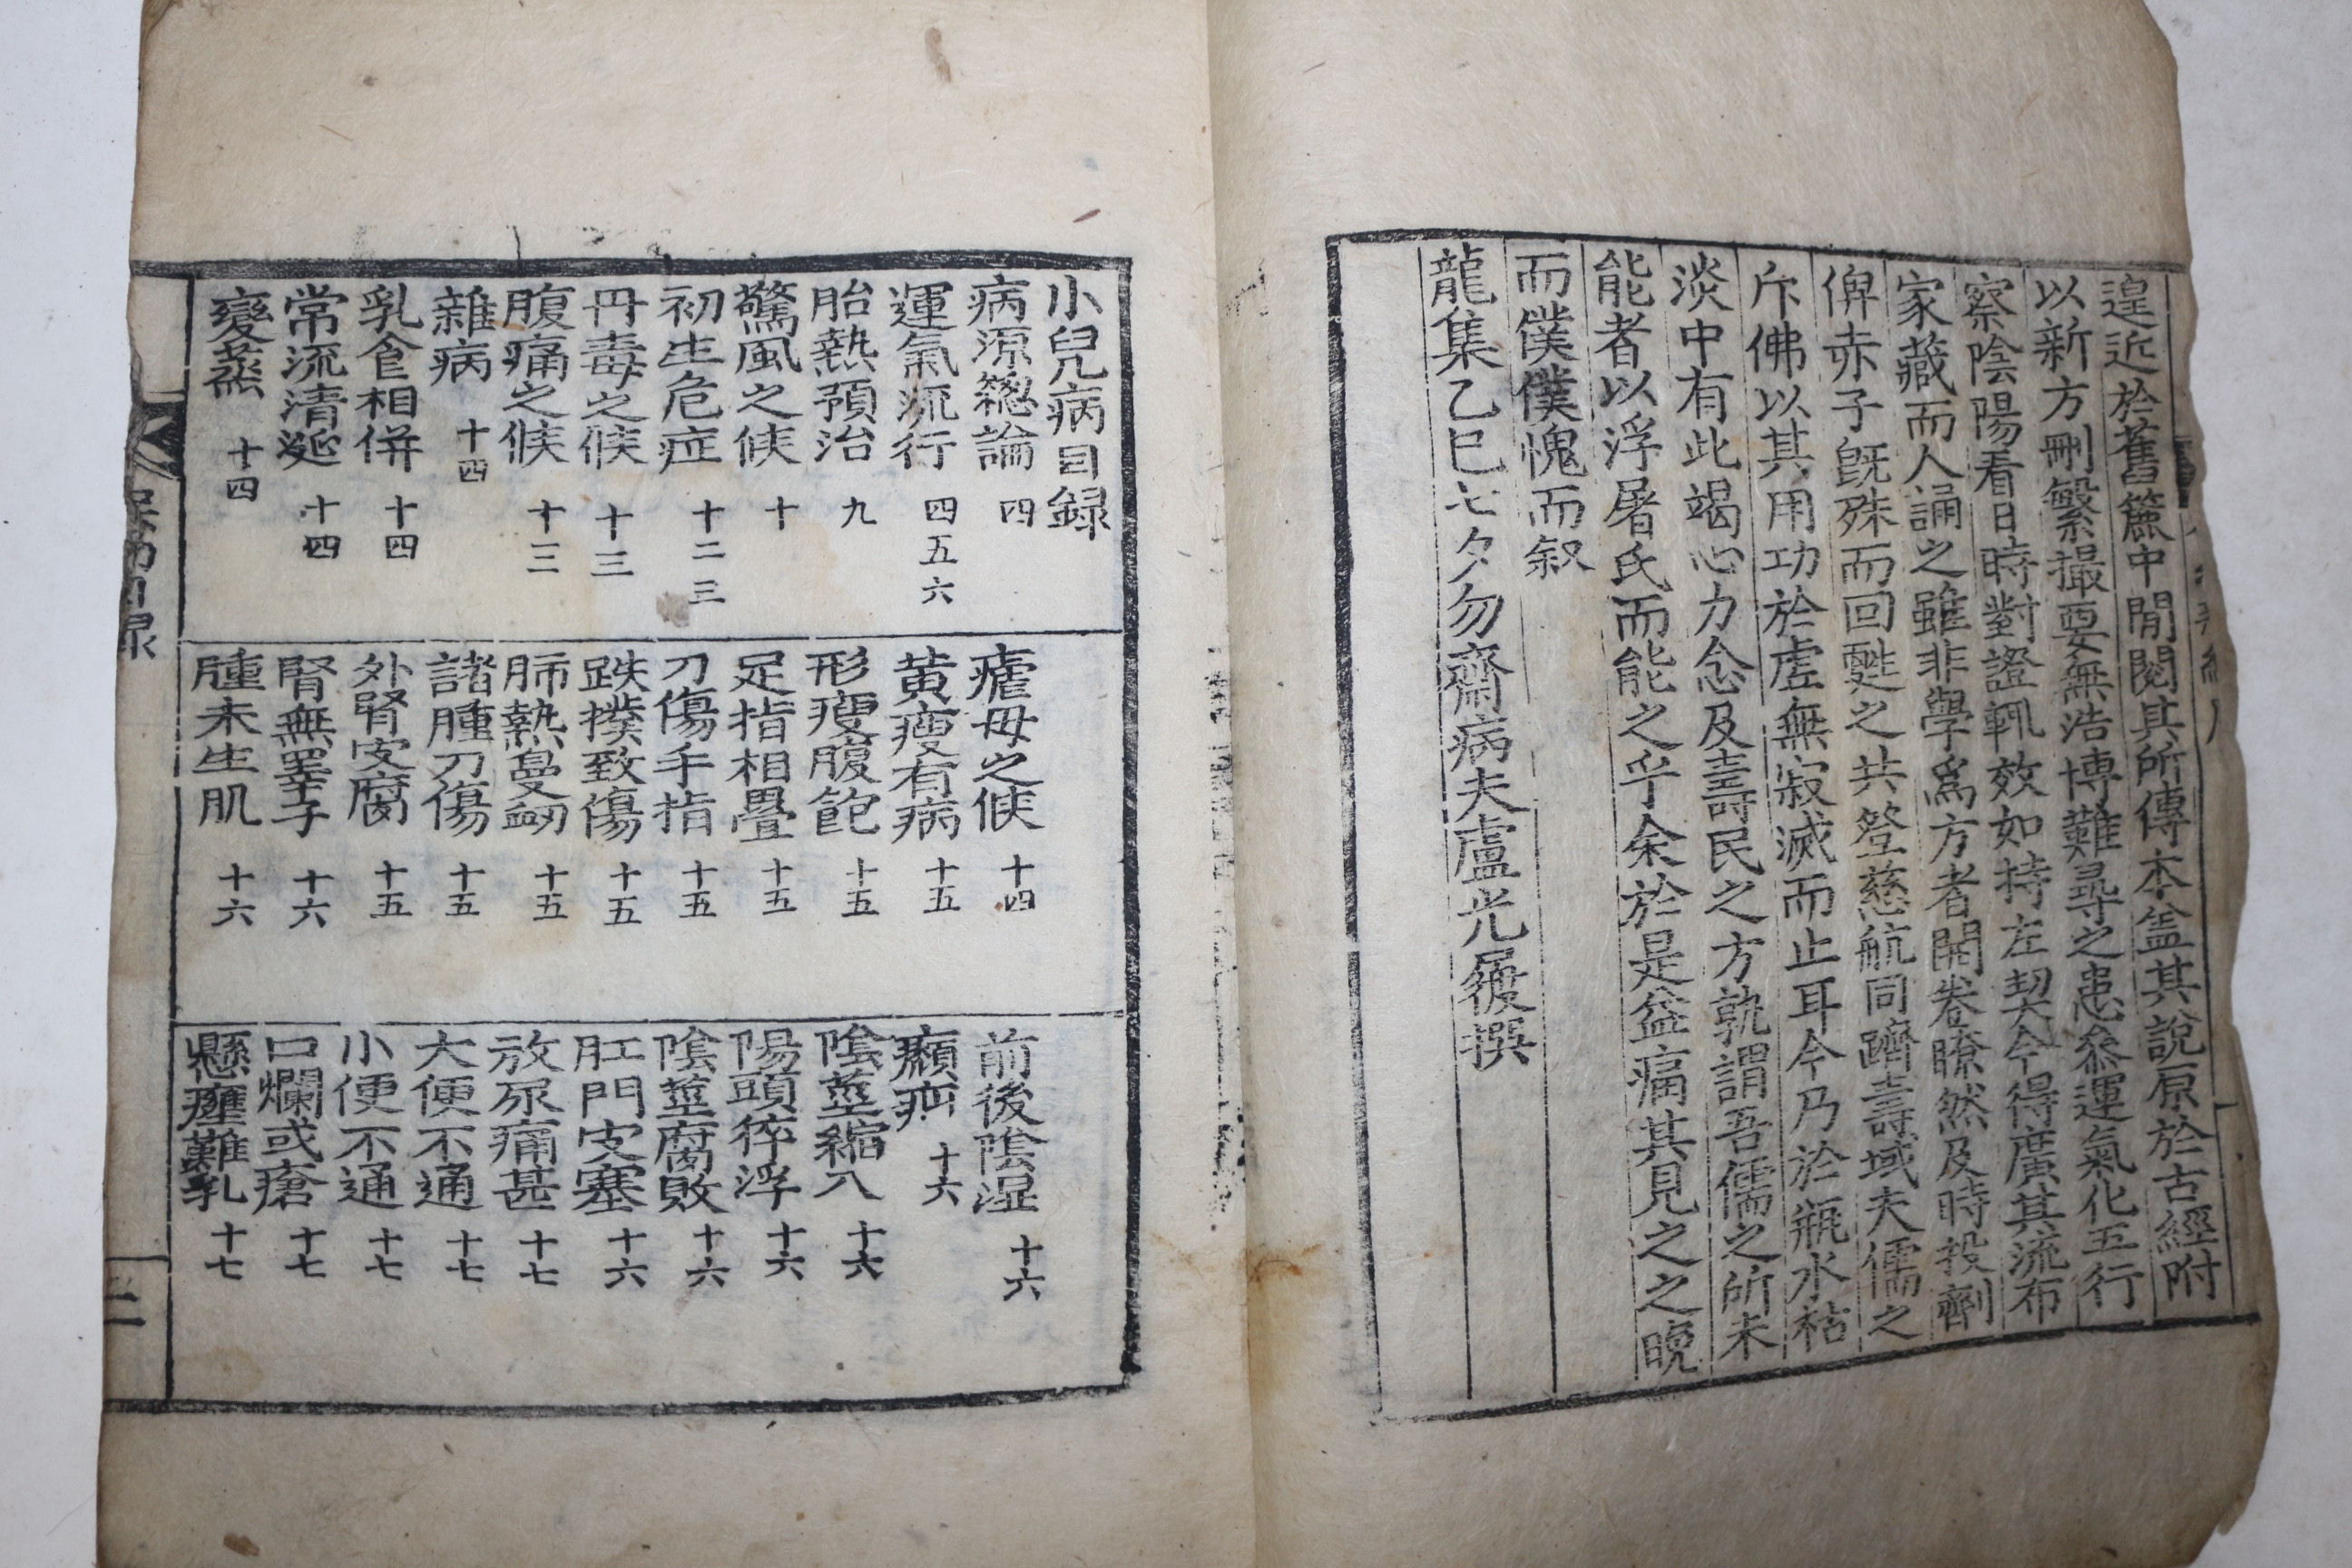 遑近於舊簏中閒閱其所傳本盖其說原於古經附
以新方刪繁撮要無浩博難尋之患叅運氣化五行
察陰陽看日時對證輒效如持左契今得廣其流布
家藏而人誦之雖非學爲方者開卷瞭然及時投劑
俾赤子旣殊而回甦之共登慈航同躋壽域夫儒之
斥佛以其用功於虛無寂滅而止耳今乃於瓶水枯
淡中有此竭心力念及壽民之方孰謂吾儒之所未
能者以浮屠氏而能之乎余於是益痛其見之之晩
而僕僕愧而叙
龍集乙巳七夕勿齋病夫盧光履撰
小兒病目録
病源總論 四
運氣流行 四五六
胎熱預治 九
驚風之候 十
初生危症 十二三
丹毒之候 十三
腹痛之候 十三
雜病 十四
乳食相併 十四
常流清涎 十四
變蒸 十四
瘧母之候 十四
黄瘦有病 十五
形瘦腹飽 十五
足指相疊 十五
刀傷手指 十五
跌撲致傷 十五
肺熱鼻衂 十五
諸腫刀傷 十五
外腎皮腐 十五
腎無睪子 十六
腫未生肌 十六
前後陰湿 十六
㿗疝 十六
陰莖縮入 十六
陽頭瘁浮 十六
陰莖腐敗 十六
肛門皮塞 十六
放尿痛甚 十七
大便不通 十七
小便不通 十七
口爛或瘡 十七
懸癰難乳 十七